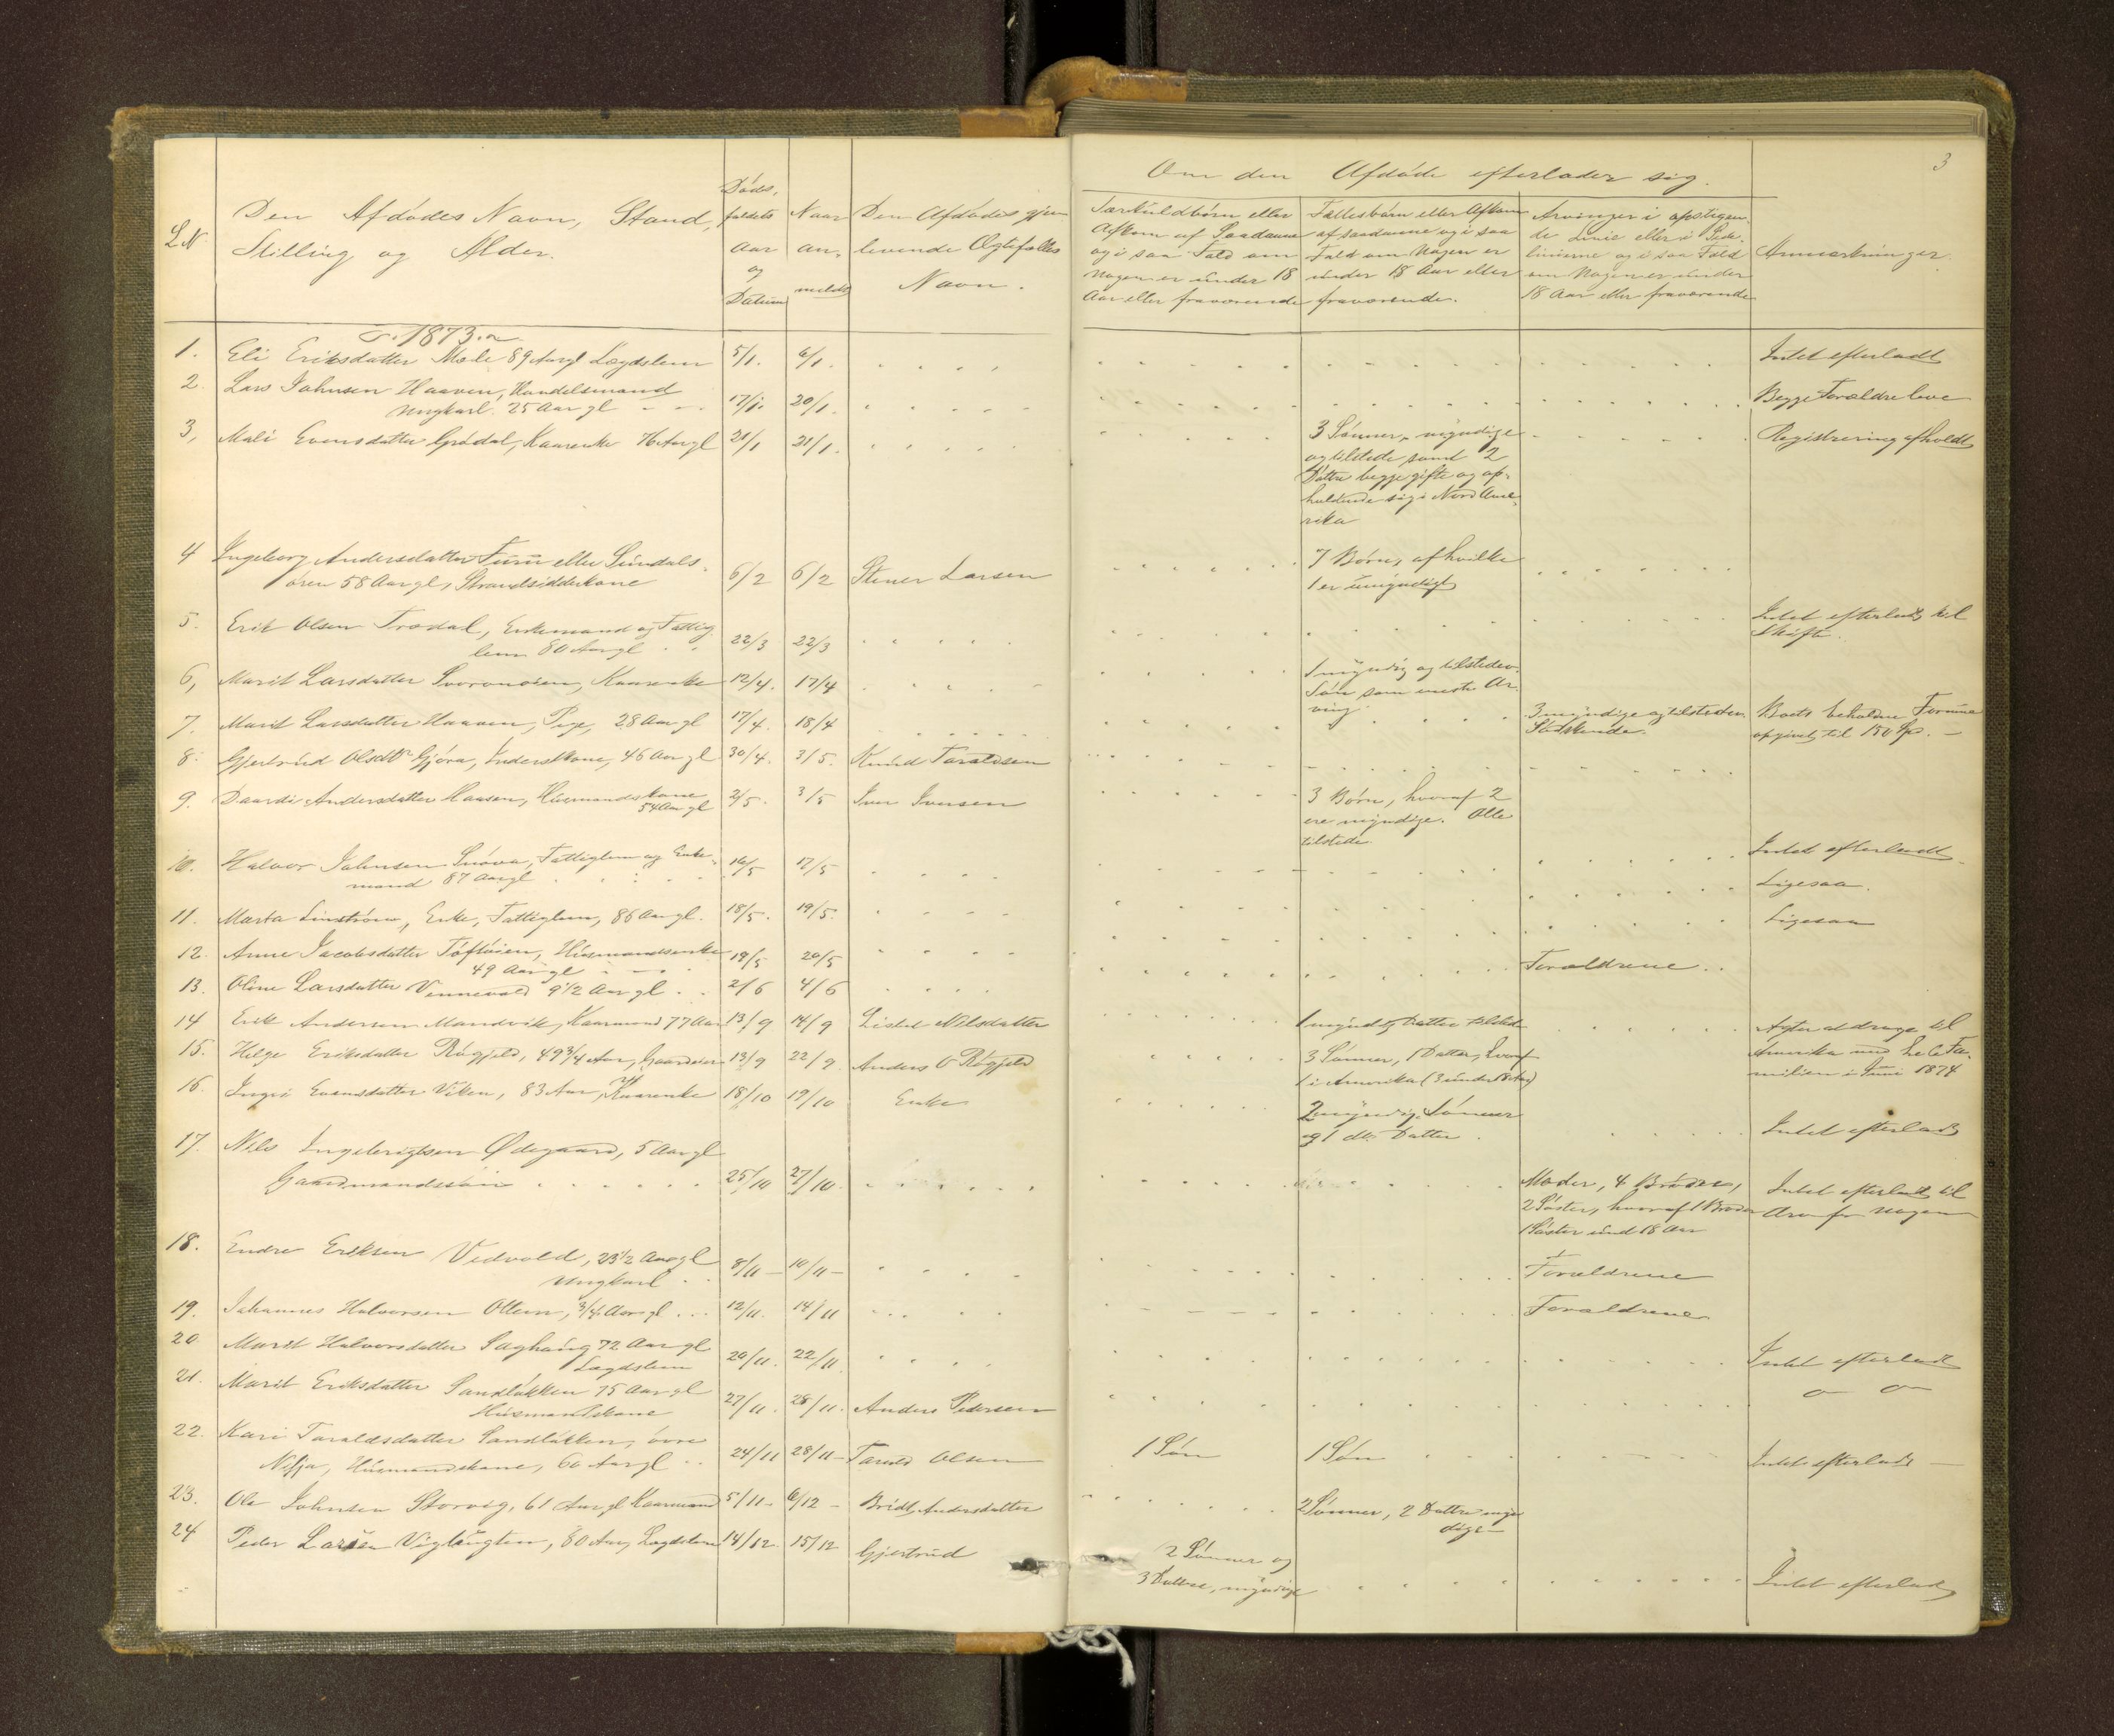 3
Om den Afdøde efterlader sig.
L N
Den Afdødes Navn, Stand,
Stilling og Alder.
Døds-
faldets
Aar
og
Datum
Naar
an-
meldt
Den Afdødes gjen
levende Ægtefælles
Navn.
Særkuldbørn eller
Afkom af Saadanne
og i saa Fald om
Nogen er under 18
Aar eller fraværende
Fællesbørn eller Afkom
af saadanne og i saa
Fald om Nogen er
under 18 Aar eller
fraværende.
Arvinger i opstigen-
de Linie eller i Side-
linierne og i saa Fald
om Nogen er under
18 Aar eller fraværende
Anmærkninger.
1873.
1. Eli Eriksdatter Mæle 89 Aar gl Lægdslem 5/1. 6/1. Intet efterladt
2. Lars Johnsen Haaven, Handelsmand
Ungkarl. 25 Aar gl 17/1. 20/1. Begge Forældre leve
3, Mali Evensdatter Grødal, Kaarenke Aar gl 20/1 21/1. 3 Sønner, myndige Registrering afholdt
og tilstede samt 2
Døttre begge gifte og op-
holdende sig i Nord Ame-
rika
4 Ingeborg Andersdatter Furu eller Sundals-
øren 58 Aar gl, Strandsidderkone 6/2 6/2 Stener Larsen 7 Børn, af hvilke
1 er umyndigt
5. Erik Olsen Trædal, Enkemand og Fattig
lem 80 Aar gl 22/3 22/3 Intet efterladt til
Skifte.
6, Marit Larsdatter Kaarenke 12/4. 17/4 1 myndig og tilstedev.
Søn som eneste Ar-
ving
7. Marit Larsdatter Haaven, Pige, 28 Aar gl 17/4. 18/4 3 myndige og tilstedev. Boets beholdne Formue
Sødskende. opgivet til 150 Sp. —
8. Gjertrud Olsdtr Gjøra, Inderstkone, 46 Aar gl 30/4. 3/5. Knud Taraldsen
9. Daardi Andersdatter Hansen, Husmandskone
54 Aar gl 2/5. 3/5 Iver Iversen 3 Børn, hvoraf 2
ere myndige. Alle
tilstede
10. Halvor Johnsen Snøva, Fattiglem og Enke-
mand 87 Aar gl 16/5 17/5 Intet efterladt
11. Marta Linstrøm, Enke, Fattiglem, 86 Aar gl. 18/5. 19/5. Ligesaa.
12. Anne Jacobsdatter Tøftøien, Husmandsenke
49 Aar gl 19/5 20/5 Ligesaa
13. Oline Larsdatter Vennevold 9 1/2 Aar gl 2/6 4/6 Forældrene
14 Erik Andersen Mandvik, Kaarmand 77 Aar 13/9 14/9 Lisbet Nilsdatter 1 myndig Datter tilstede
15. Helge Eriksdatter Røgjeld, 49 3/4 Aar, 13/9 22/9 Anders O Røgjeld 3 Sønner, 1 Datter, hvoraf
1 i Amerika (3 under 18 Aar)
Agter at drage til
Amerika med hele Fa-
milien i Juni 1874
16. Ingri Evensdatter Viken, 83 Aar, Kaarenke 18/10 19/10 Enke 2 myndig. Sønner
og 1 do. Datter. Intet efterladt
17. Nils Ingebrigtsen Ødegaard, 5 Aar gl
Gaardmandssøn 25/10 27/10. Moder, 4 Brødre,
2 Søstre, hvoraf 1 Broder
1 Søster und 18 Aar
Intet efterladt til
Arv for Nogen
18. Endre Eriksen Vedvold, 23 1/2 Aar gl
Ungkarl 8/11 — 10/11 — Forældrene
19. Johannes Halvorsen Ottem, 3/4 Aar gl 12/11. 14/11 Forældrene
20. Marit Halvorsdatter Saghaug 72 Aar gl
Lægdslem 20/11. 22/11. Intet efterladt
21. Marit Eriksdatter Sandløkken 75 Aar gl
Husmandskone 27/11. 28/11. Anders Pedersen
22. Kari Taraldsdatter Sandløkken, øvre
Nisja, Husmandskone, 60 Aar gl 24/11 28/11 — Tarald Olsen 1 Søn 1 Søn Intet efterladt —
23. Ole Johnsen Storvig, 61 Aar gl Kaarmand 5/11 — 6/12 — Bridt Andersdatter 2 Sønner, 2 Døttre myn
dige —
24 Peder Larsen 80 Aar, Lægdslem 14/12 15/12 Gjertrud 2 Sønner og
3 Døttre, myndige
Intet efterladt